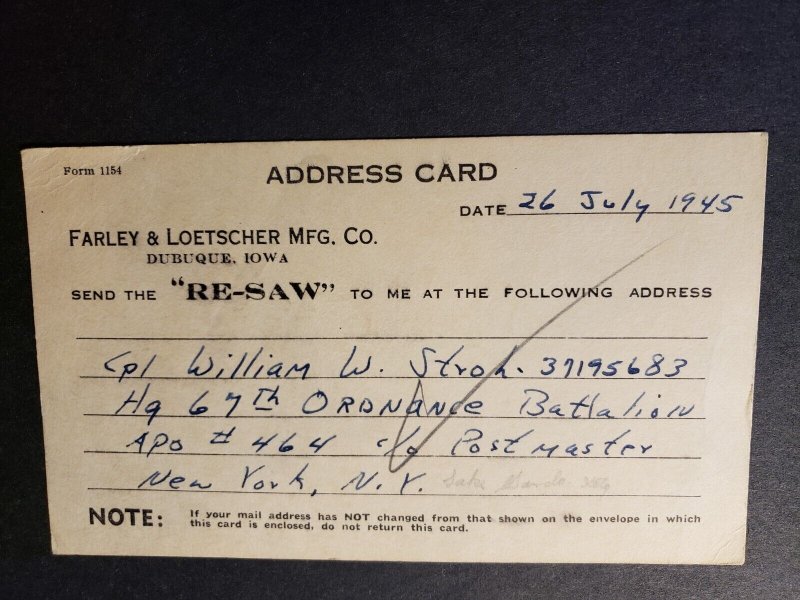 Form 1154
ADDRESS CARD
DATE 26 July 1945
FARLEY & LOETSCHER MFG. CO.
DUBUQUE, IOWA
SEND THE "RE-SAW" TO ME AT THE FOLLOWING ADDRESS
Cpl William W. Stroh. 37195683
Hq 67th ORDNANCE Battalion
APO # 464 c/o Postmaster
New York, N.Y.
NOTE: If your mail address has NOT changed from that shown on the envelope in which
this card is enclosed, do not return this card.